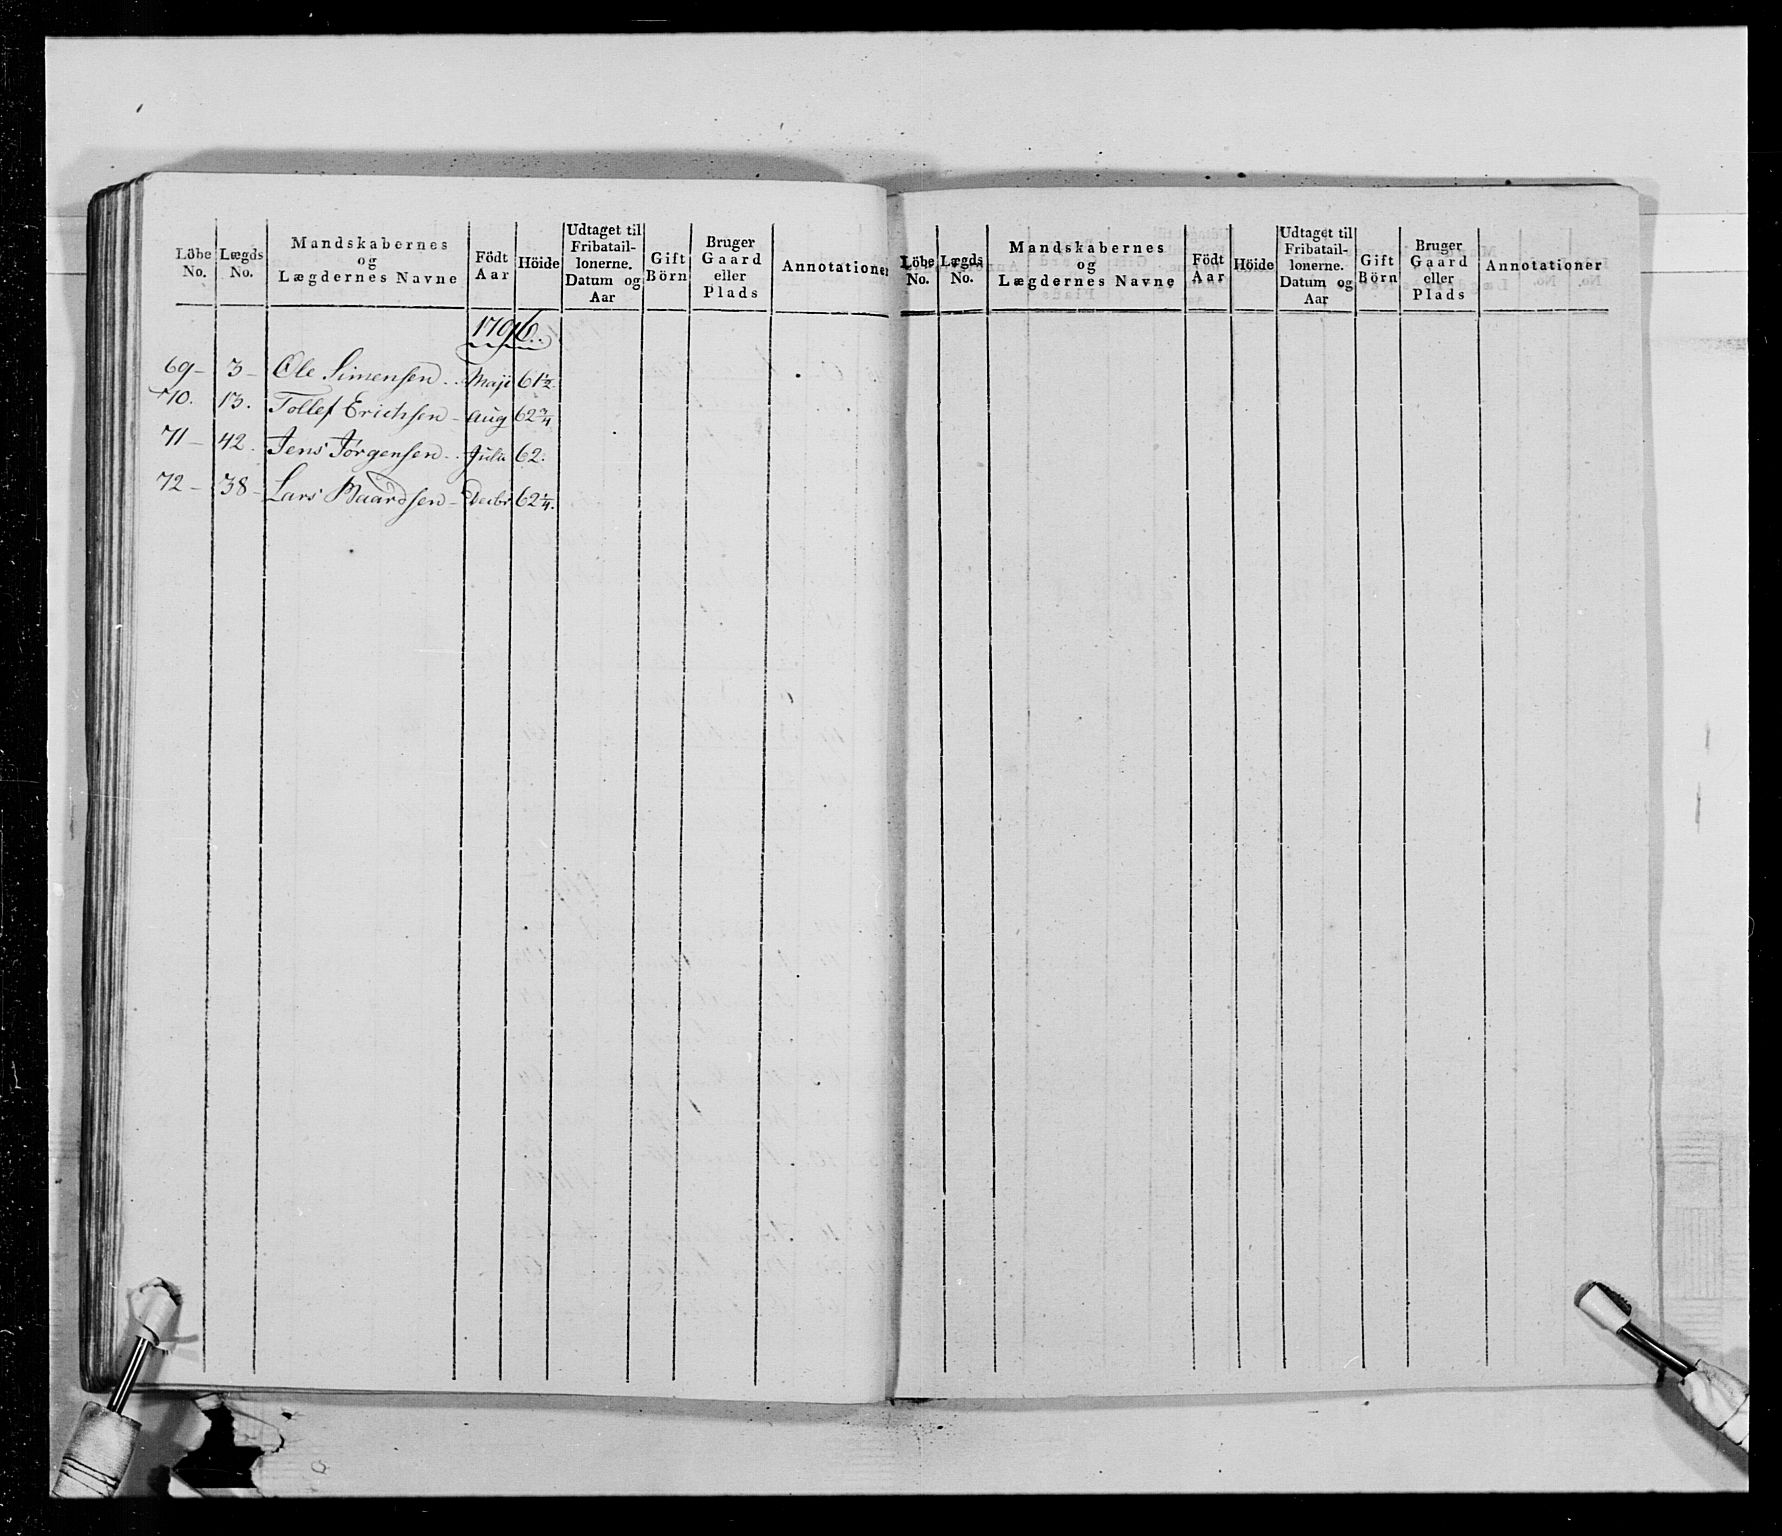 Löbe No. Lægds No. Mandskabernes og Lægdernes Navne Födt Aar Höide Udtaget til Fribatail-lonerne. Datum og Aar Gift Börn Bruger Gaard eller Plads Annotationer
1796.
69 – 3 – Ole Simensen . . Maji 61 1/2.
70. 13. Tollef Erichsen – Aug 62 3/4
71 – 42. Jens Jørgensen . . Julii 62.
72 – 38 – Lars Baardsen – Decbr 62 1/4.
Löbe No. Lægds No. Mandskabernes og Lægdernes Navne Födt Aar Höide Udtaget til Fribatail-lonerne. Datum og Aar Gift Börn Bruger Gaard eller Plads Annotationer